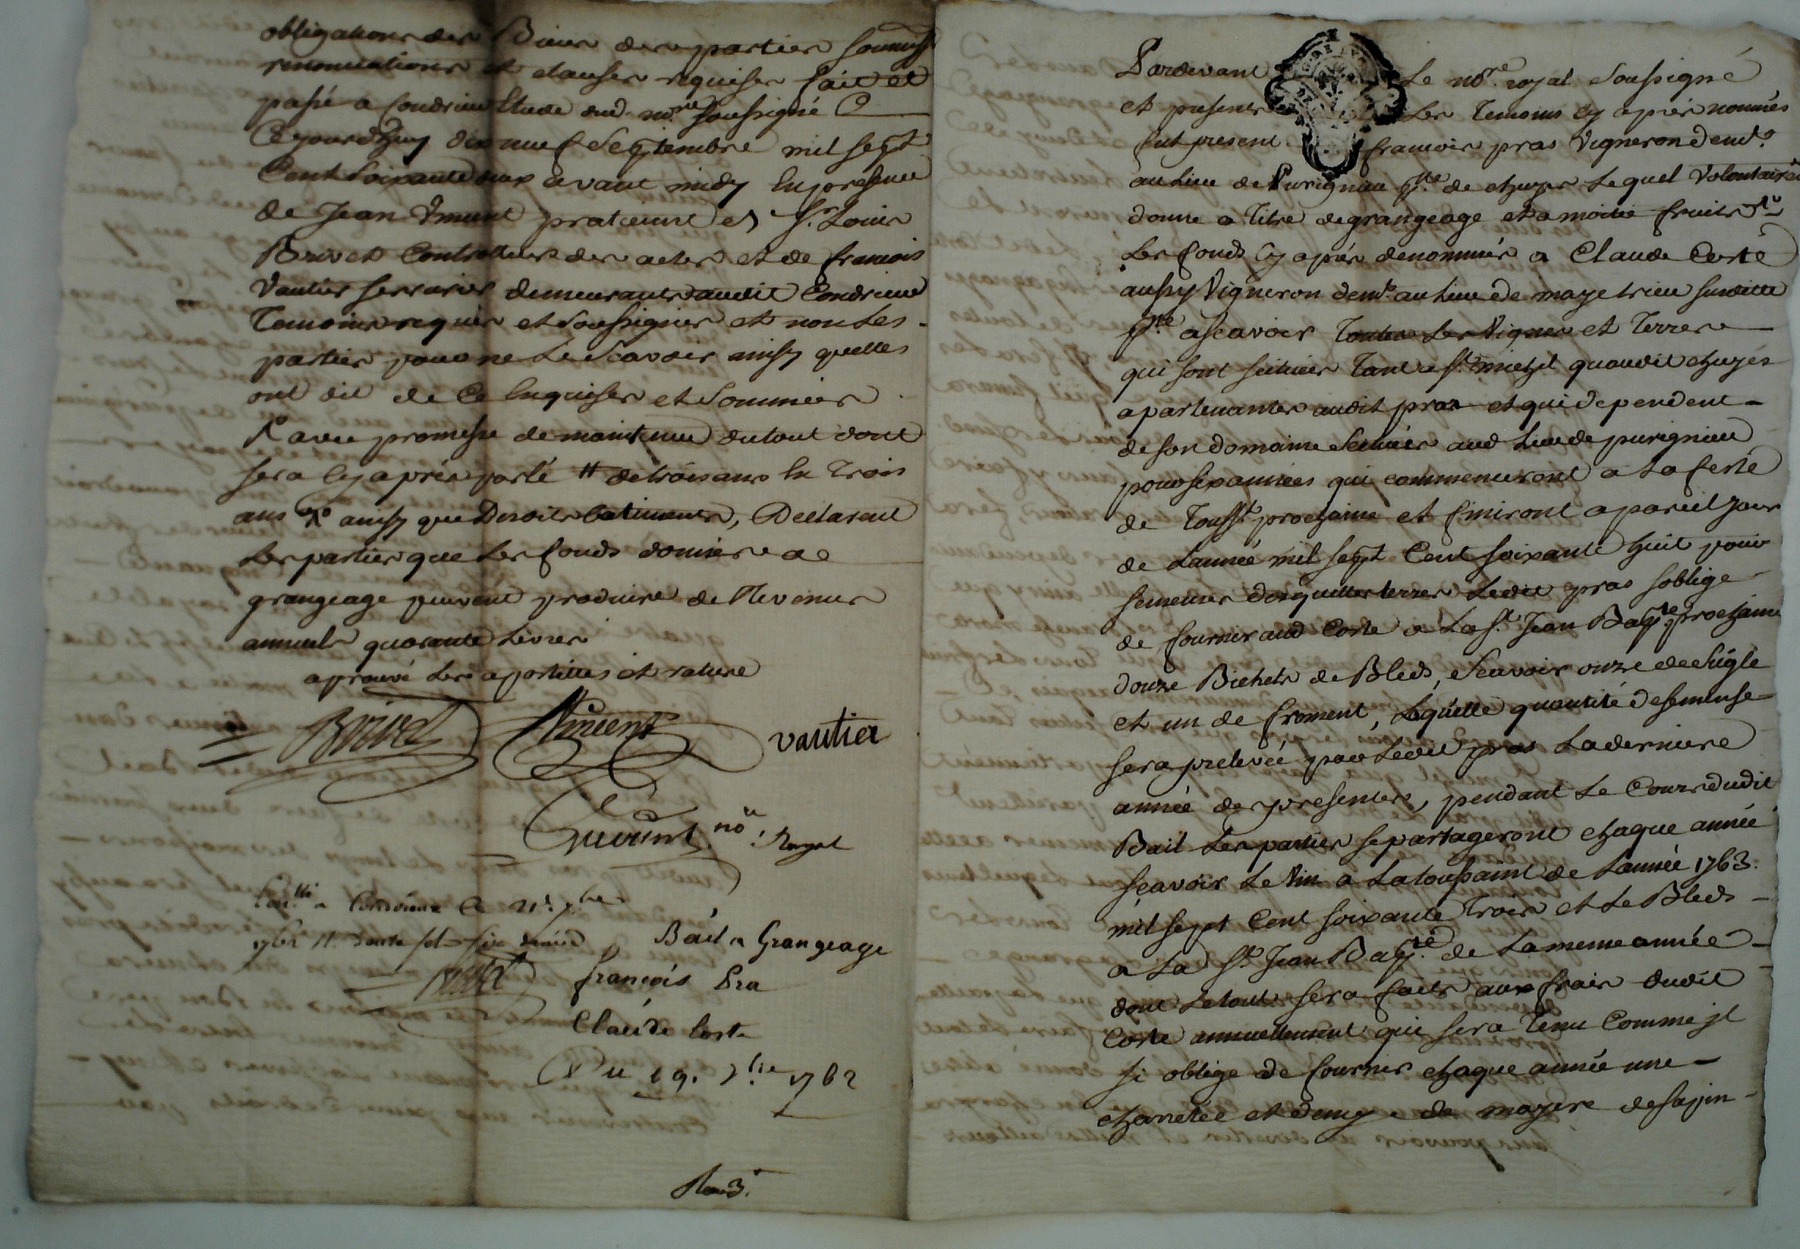 obligations des Biens des parties soumiss
renonciations et clauses requises fait et
passé a Condrieu Etude dud. nore soussigné
Cejourdhuy dix neuf Septembre mil sept
Cent soixante deux avant midy En presence
de Jean Vincent praticien et Sr. Louis
Brivet Controlleur des actes et de francois
Vautier serrurier demeurants audit Condrieu
Temoins requis et soussignés et non les
parties pour ne le scavoir ainsy quelles
ont dit de ce Enquises et sommées
avec promesse de maintenue du tout dont
sera cy après parlé # de trois ans En Trois
ans ainsy que Desdits batiments, Declarent
Les parties que Les fonds donnés a
grangeage peuvent produire de Revenus
annuels quarante Livres
aprouvé les apostilles et rature
Brivet Vincent vautier
nore Royal
a Condrieu Le 21 7bre
1762 R. douze sols six deniers
Bail a Grangeage
françois Pra
Claude Corte
Du 19. 7bre 1762
Pardevant Le nore. royal soussigné
et presents Les Temoins cy après nommés
fut present francois pras Vigneron demt.
au Lieu de Purignieu psse de chuyes Lequel Volontairemt
donne a Titre de grangeage et a moitié fruits
Les fonds cy après denommés a Claude Corte
aussy Vigneron demt. au Lieu de mayetrieu susditte
psse a scavoir Toutes Les Vignes et Terres
qui sont scituées Tant a St. michel quaudit chuyes
apartenantes audit pras et qui dependent
de son domaine scitués aud Lieu de purignieu
pour six années qui commenceront a La feste
de Tousst. prochaine et finiront a pareil jour
de Lannée mil sept Cent soixante huit pour
semences desquelles terres Ledit pras soblige
de fournir aud Corte a La St. Jean Bapte. prochaine
douze Bichets de Bled, scavoir onze de seigle
et un de froment, Lequelle quantité de semense
sera prelevée par Ledit pras La derniere
année des presentes, pendant Le Cours dudit
Bail Les parties se partageront chaque année
scavoir Le Vin a La toussaint de Lannée 1763.
mil sept Cent soixante Trois et Le Bleds
a La St. Jean Bapte. de La meme année
dont Le tout sera fait aux frais dudit
Corte annuellement qui sera Tenu Comme jl
si oblige de fournir chaque année une
charretée et demy de mayere de sapin